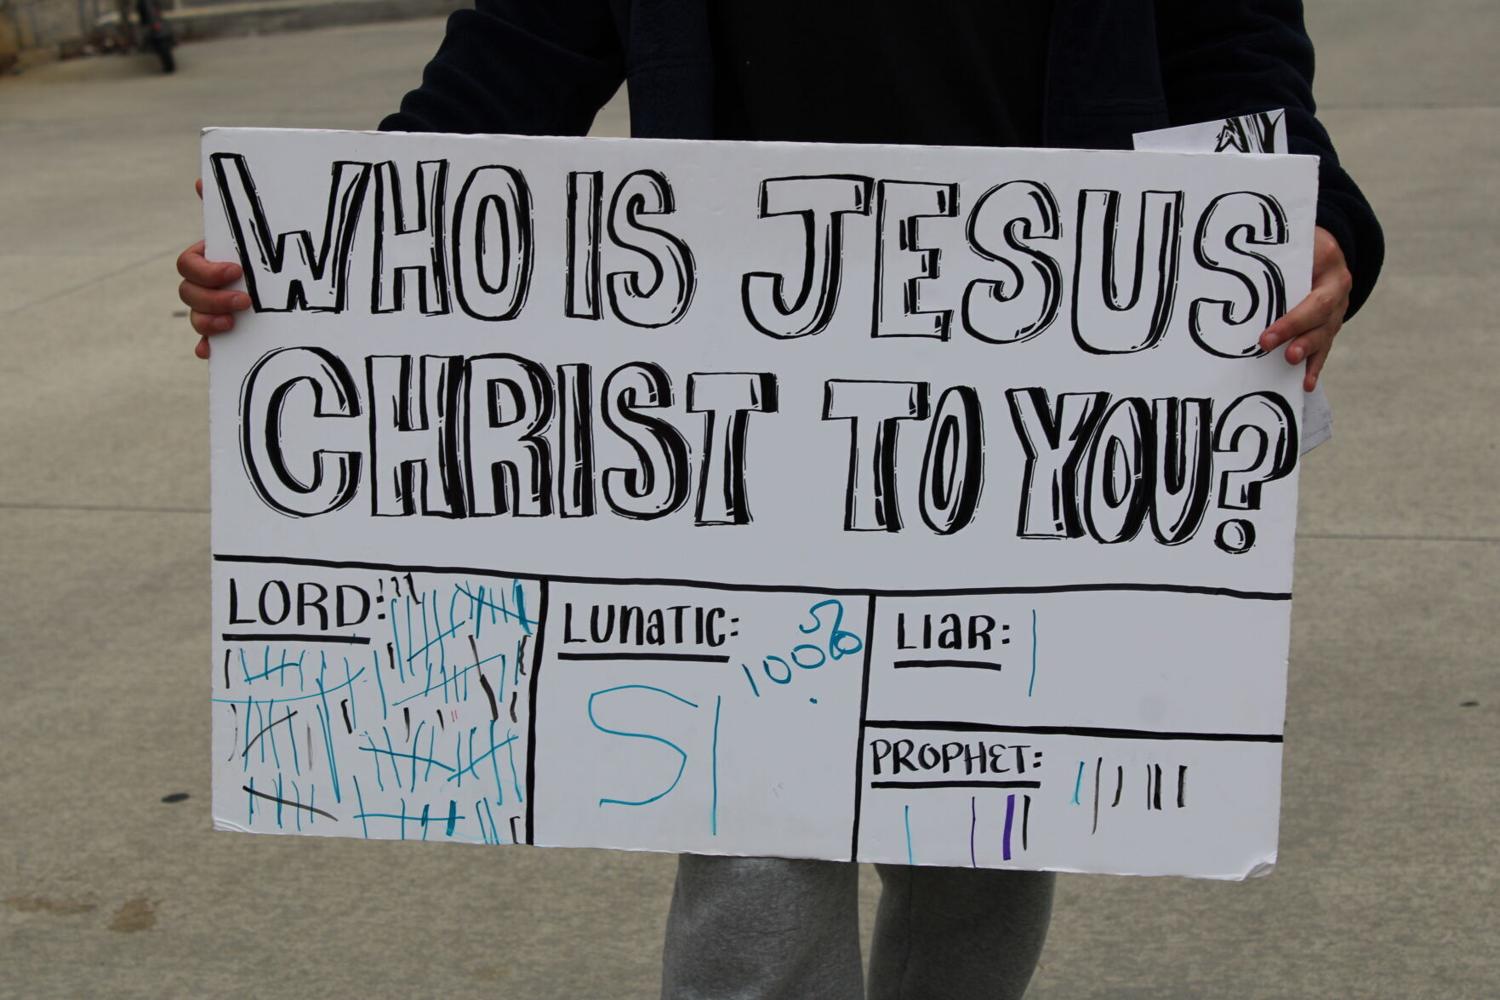 WHO IS JESUS
CHRIST TO YOU?
LORD:
LUNATIC:
100%
LIAR:
PROPHET: